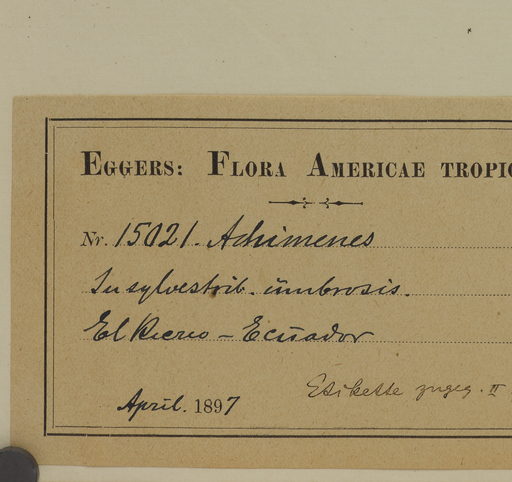 EGGERS: FLORA AMERICAE TROPIC
Nr. 15021. Achimenes
In sylvestrib. umbrosis.
El Recreo - Ecuador
April. 1897
Etikette zugeg. II